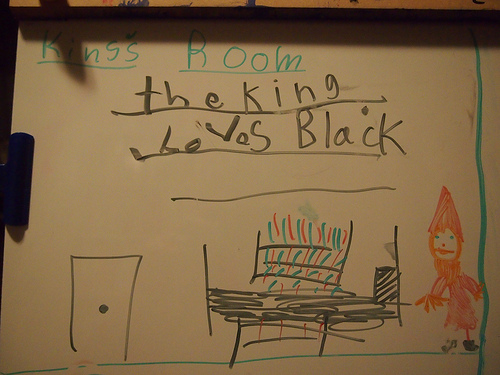 Kinsś Room
the King
Loves Black